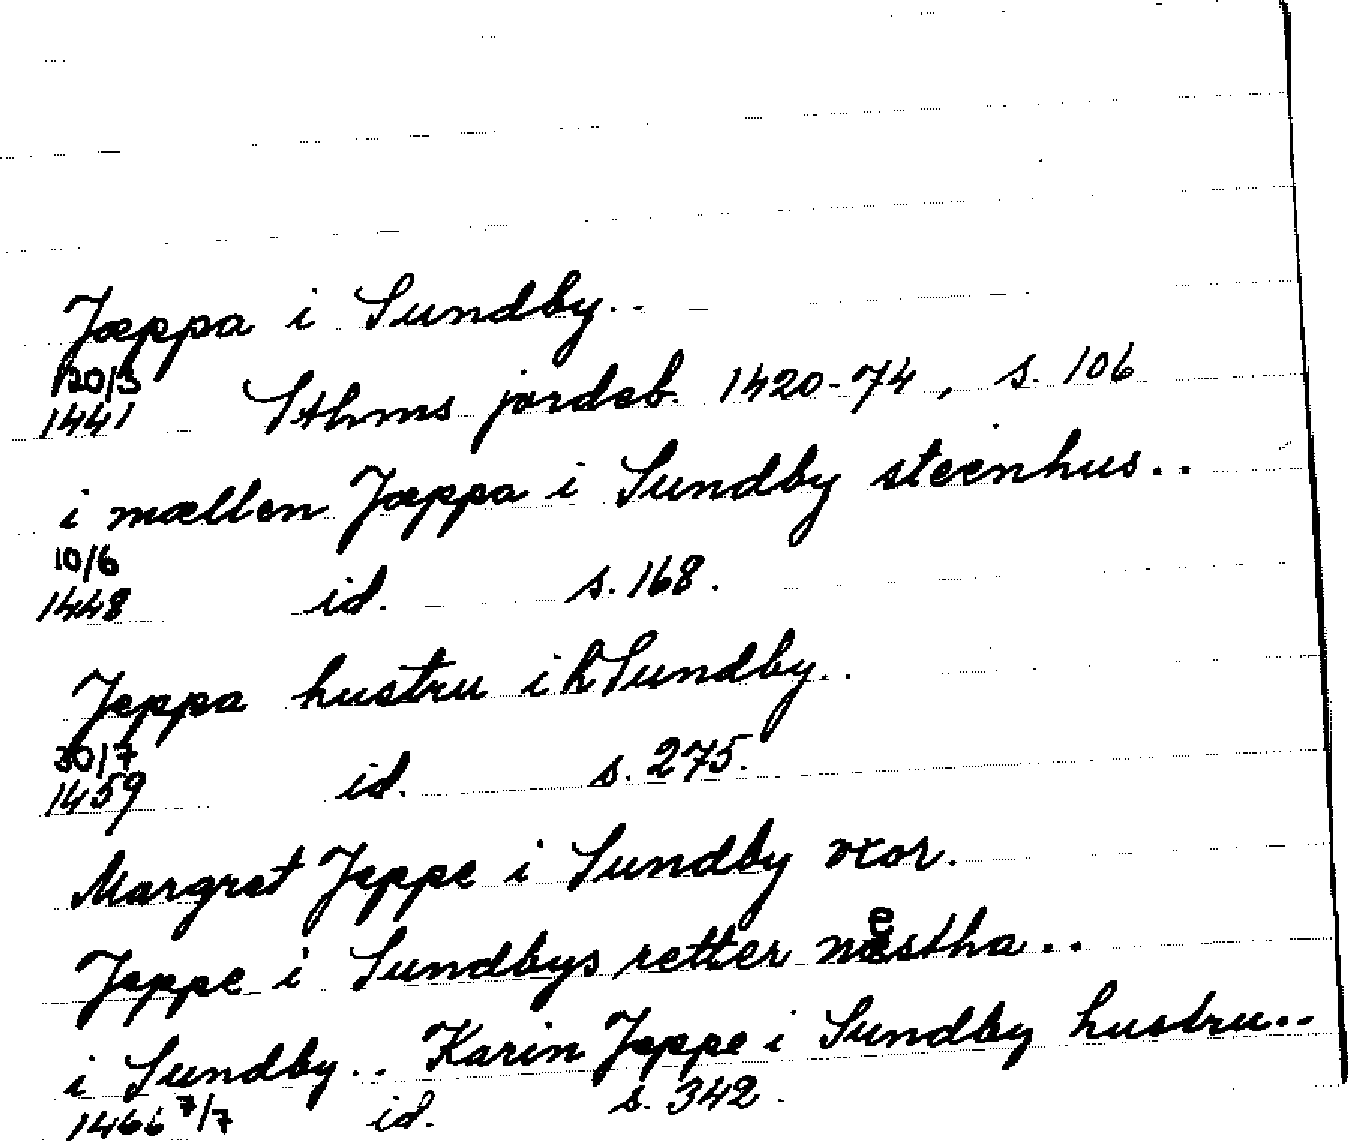 Jæppa i Sundby..
20/3
1441 Sthms jordeb. 1420-74, s. 106
i mællen Jæppa i Sundby steenhus..
10/6
1448 id. s. 168.
Jeppa hustru i Sundby..
30/7
1459 id. s. 275.
Margret Jeppe i Sundby vxor.
Jeppe i Sundbys retter næstha..
i Sundby.. Karin Jeppe i Sundby hustru..
1466 7/7 id. s. 342.